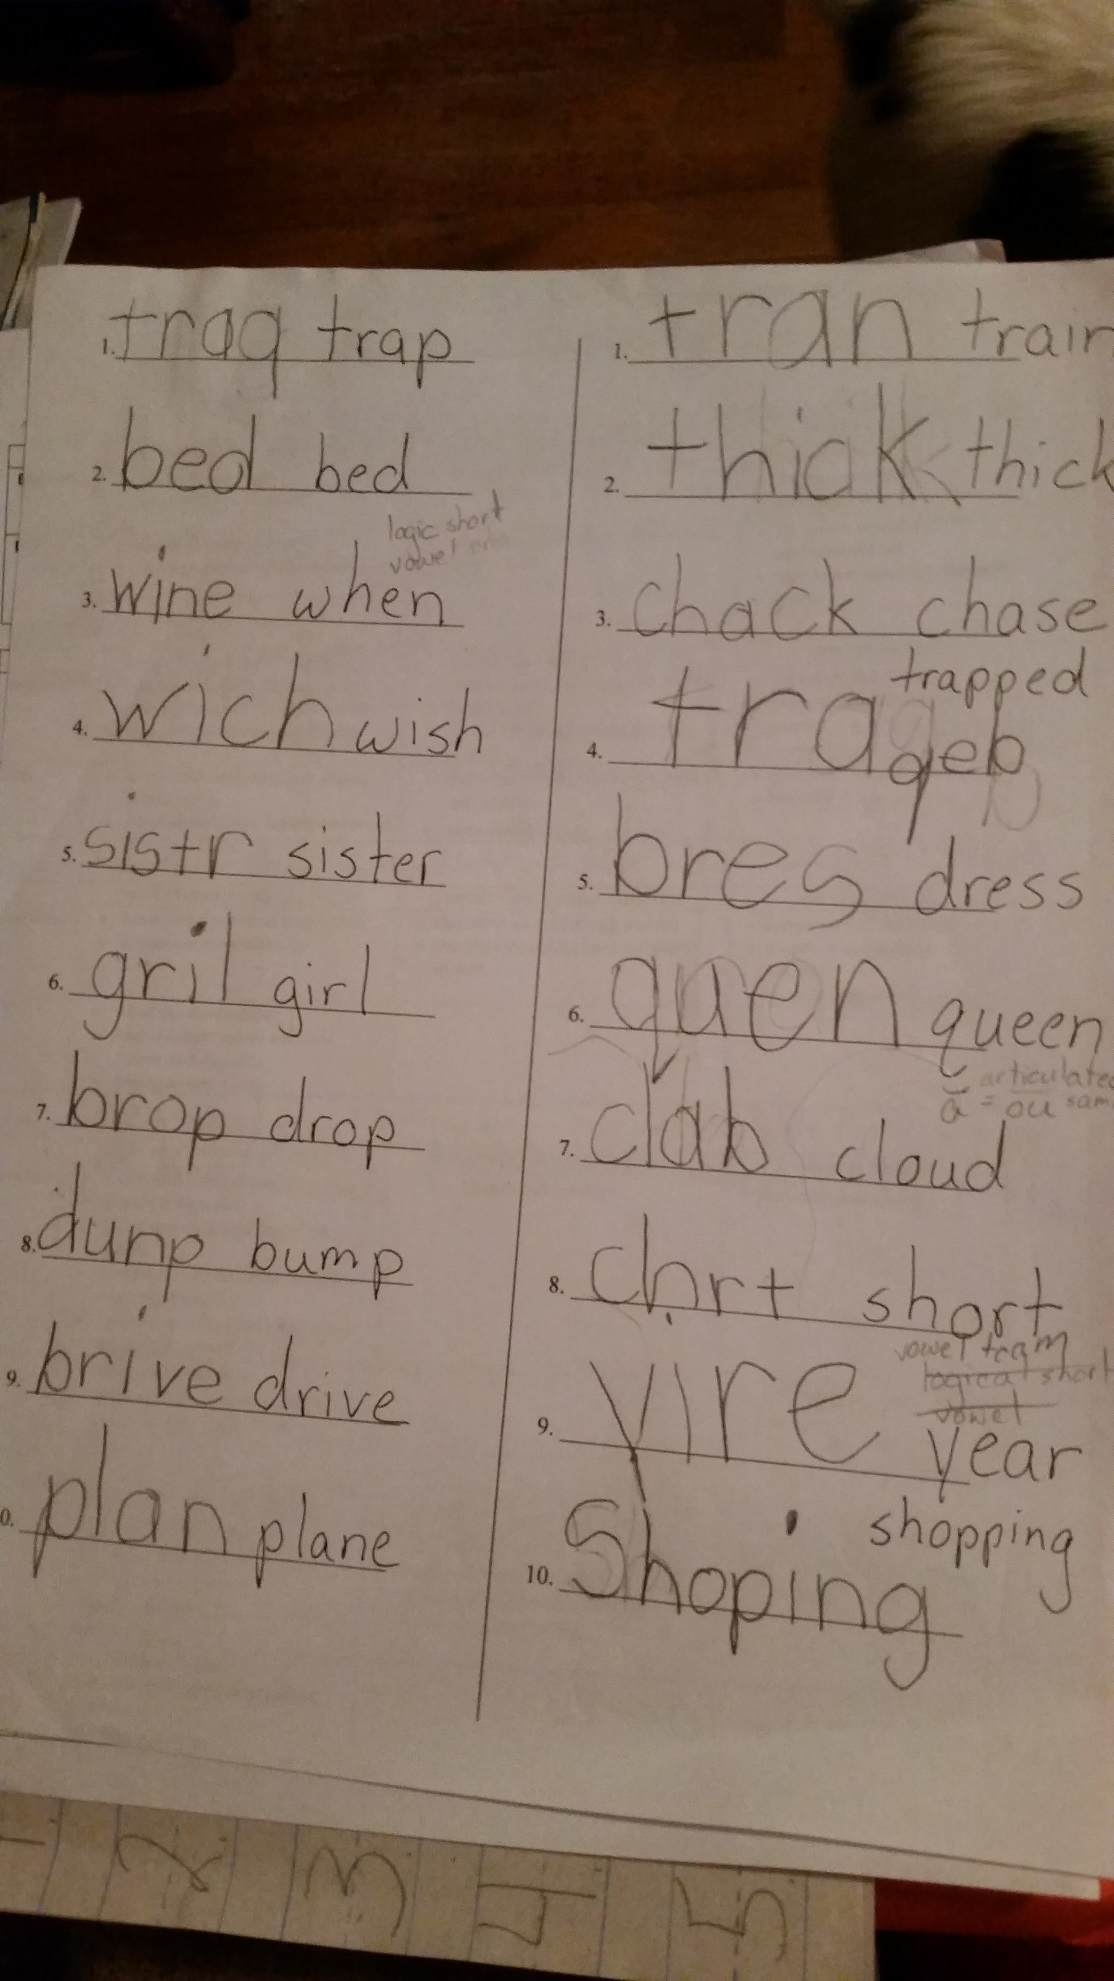 1. traq trap
2. bed bed
logic short
vowel
3. wine when
4. wich wish
5. sistr sister
6. gril girl
7. brop drop
8. dunp bump
9. brive drive
0. plan plane
1. tran train
2. thick thick
3. chack chase
trapped
4. traqeb
5. bres dress
6. quen queen
articulated
ă = ou sam
7. clab cloud
8. chrt short
vowel team
logical short
vowel
9. yire year
shopping
10. Shoping
1 2 3 4 5